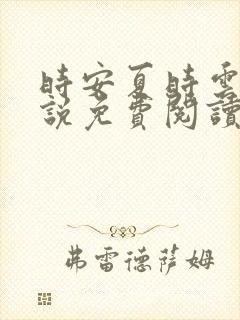 時安夏時雲
說免費閱讀
弗雷德薩姆